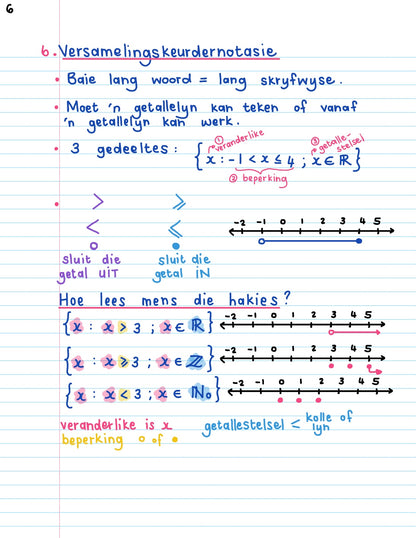 6
6. Versamelingskeurdernotasie
• Baie lang woord = lang skryfwyse.
• Moet 'n getallelyn kan teken of vanaf
'n getallelyn kan werk.
• 3 gedeeltes: {x : -1 < x ≤ 4 ; x ∈ ℝ}
① veranderlike
③ getalle-
stelsel
② beperking
• > ≥
< ≤
sluit die
getal UIT
sluit die
getal IN
-2 -1 0 1 2 3 4 5
Hoe lees mens die hakies?
{x : x > 3 ; x ∈ ℝ} -2 -1 0 1 2 3 4 5
{x : x ≥ 3 ; x ∈ ℤ} -2 -1 0 1 2 3 4 5
{x : x < 3 ; x ∈ ℕ₀} -2 -1 0 1 2 3 4 5
veranderlike is x
beperking o of •
getallestelsel < kolle of
lyn